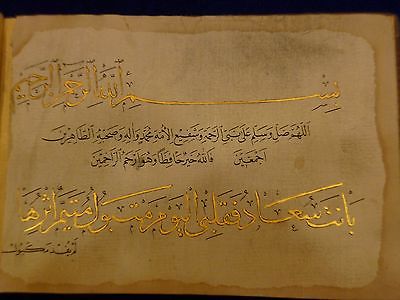 بسم الله الرحمن الرحيم
اللهم صل وسلم على نبي الرحمة وشفيع الأمة محمد وآله وصحبه الطاهرين
اجمعين فالله خير حافظا وهو ارحم الراحمين
بانت سعاد فقلبي اليوم متبول متيم اثرها
لم يفد مكبول